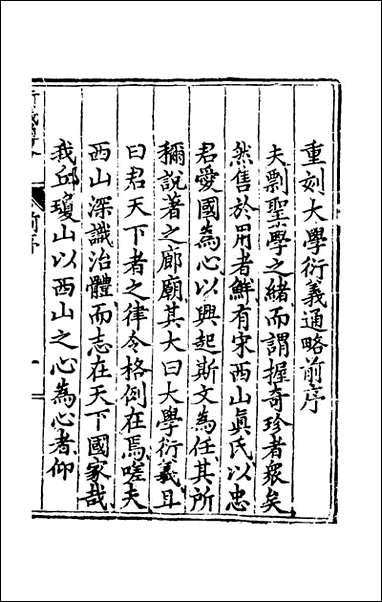 重刻大學衍義通略前序
夫剽聖學之緒而謂握奇珍者衆矣
然售於用者鮮有宋西山眞氏以忠
君愛國為心以興起斯文為任其所
稱說著之廊廟其大曰大學衍義且
曰君天下者之律令格例在焉嗟夫
西山深識治體而志在天下國家哉
我丘瓊山以西山之心為心者仰
前序